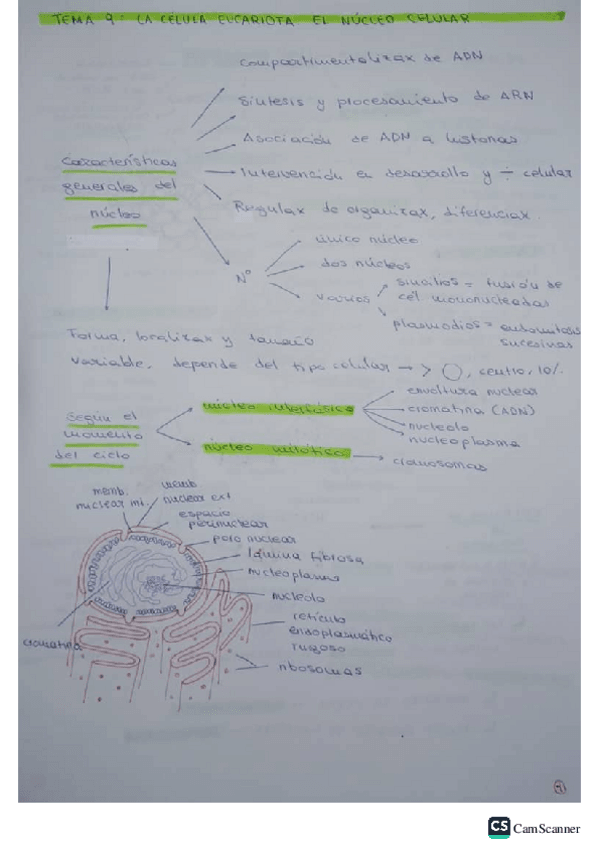 TEMA 9: LA CÉLULA EUCARIOTA. EL NÚCLEO CELULAR
Compartimentalizax de ADN
Síntesis y procesamiento de ARN
Asociación de ADN a histonas
Características
generales del
núcleo
Intervención en desarrollo y ÷ celular
Regulax de organizax, diferenciax.
Nº
único núcleo
dos núcleos
varios
sincitios = fusión de
cél mononucleadas
plasmodios = endomitosis
sucesivas
Forma, localizax y tamaño
variable, depende del tipo celular → > ◯, centro, 10%.
Según el
momento
del ciclo
núcleo interfásico
envoltura nuclear
cromatina (ADN)
nucleolo
nucleoplasma
núcleo mitótico
cromosomas
memb.
nuclear int.
memb
nuclear ext
espacio
perinuclear
poro nuclear
lámina fibrosa
nucleoplasma
nucleolo
retículo
endoplasmático
rugoso
ribosomas
cromatina
CS CamScanner